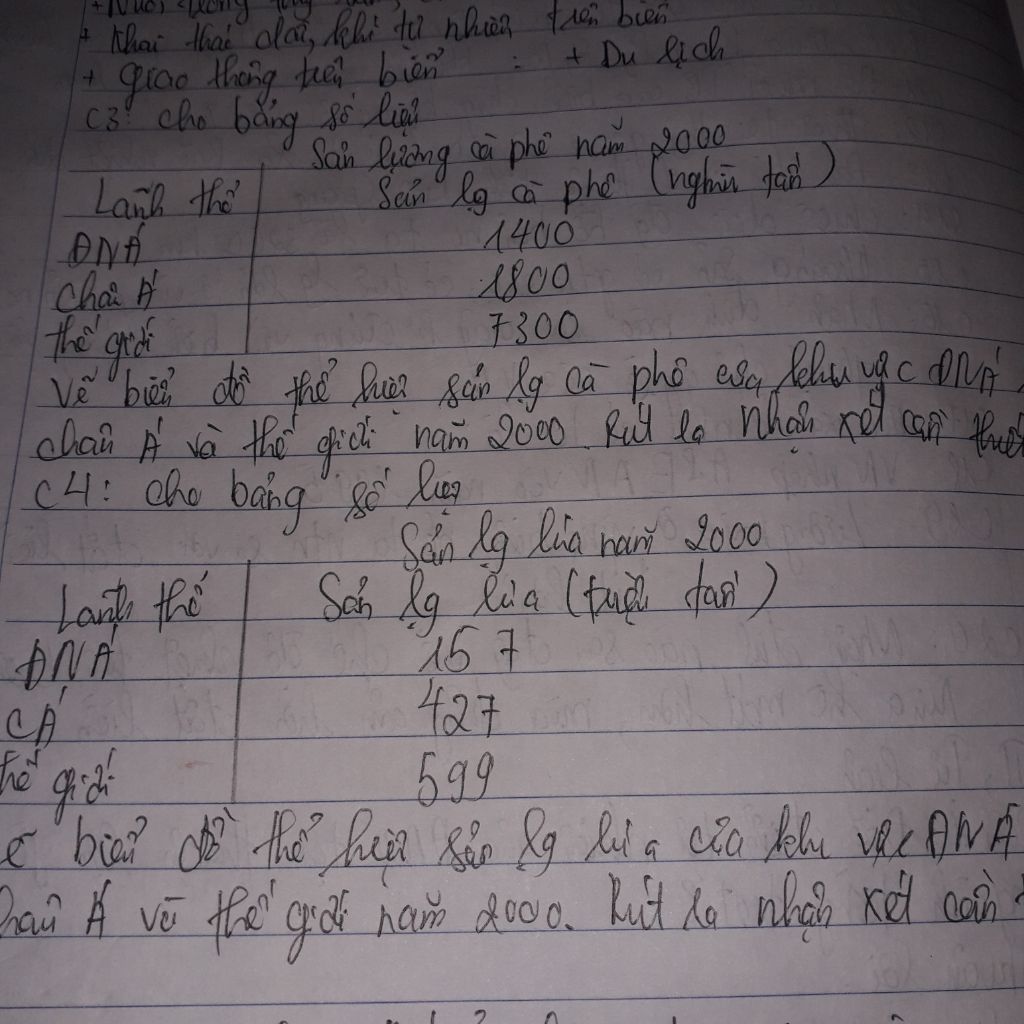 + Khai thái dầu, khí tự nhiên trên biển
+ giao thông trên biển : + Du lịch
C3: cho bảng số liệu
Sản lượng cà phê năm 2000
Lãnh thổ Sản lg cà phê (nghìn tấn)
ĐNÁ 1400
Châu Á 1800
thế giới 7300
Vẽ biểu đồ thể hiện sản lg cà phê của khu vực ĐNÁ,
châu Á và thế giới năm 2000. Rút ra nhận xét cần
C4: cho bảng số liệu
Sản lg lúa năm 2000
Lãnh thổ Sản lg lúa (triệu tấn)
ĐNÁ 157
CÁ 427
thế giới 599
biểu đồ thể hiện sản lg lúa của khu vực ĐNÁ
Á về thế giới năm 2000. Rút ra nhận xét cần